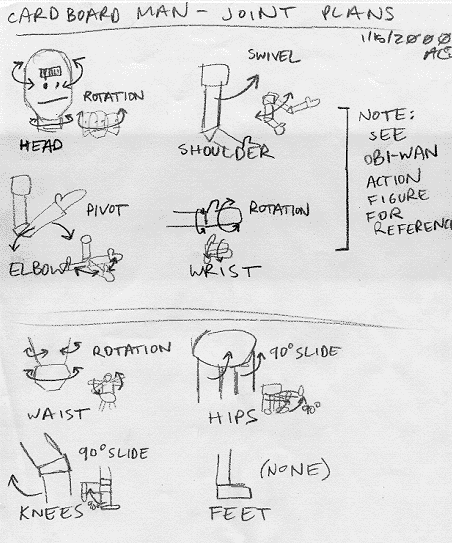 CARDBOARD MAN - JOINT PLANS
1/16/2000
ROTATION
HEAD
SWIVEL
SHOULDER
NOTE:
SEE
OBI-WAN
ACTION
FIGURE
FOR
REFERENCE
PIVOT
ELBOW
ROTATION
WRIST
ROTATION
WAIST
90° SLIDE
90°
HIPS
90° SLIDE
90°
KNEES
(NONE)
FEET